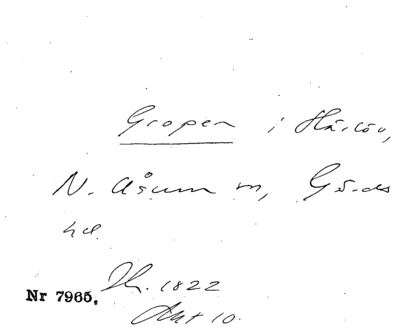 Gropen i Härlöv,
N. Åsum sn, Gärds
hd
Nr 7965. Th. 1822
Akt 10.